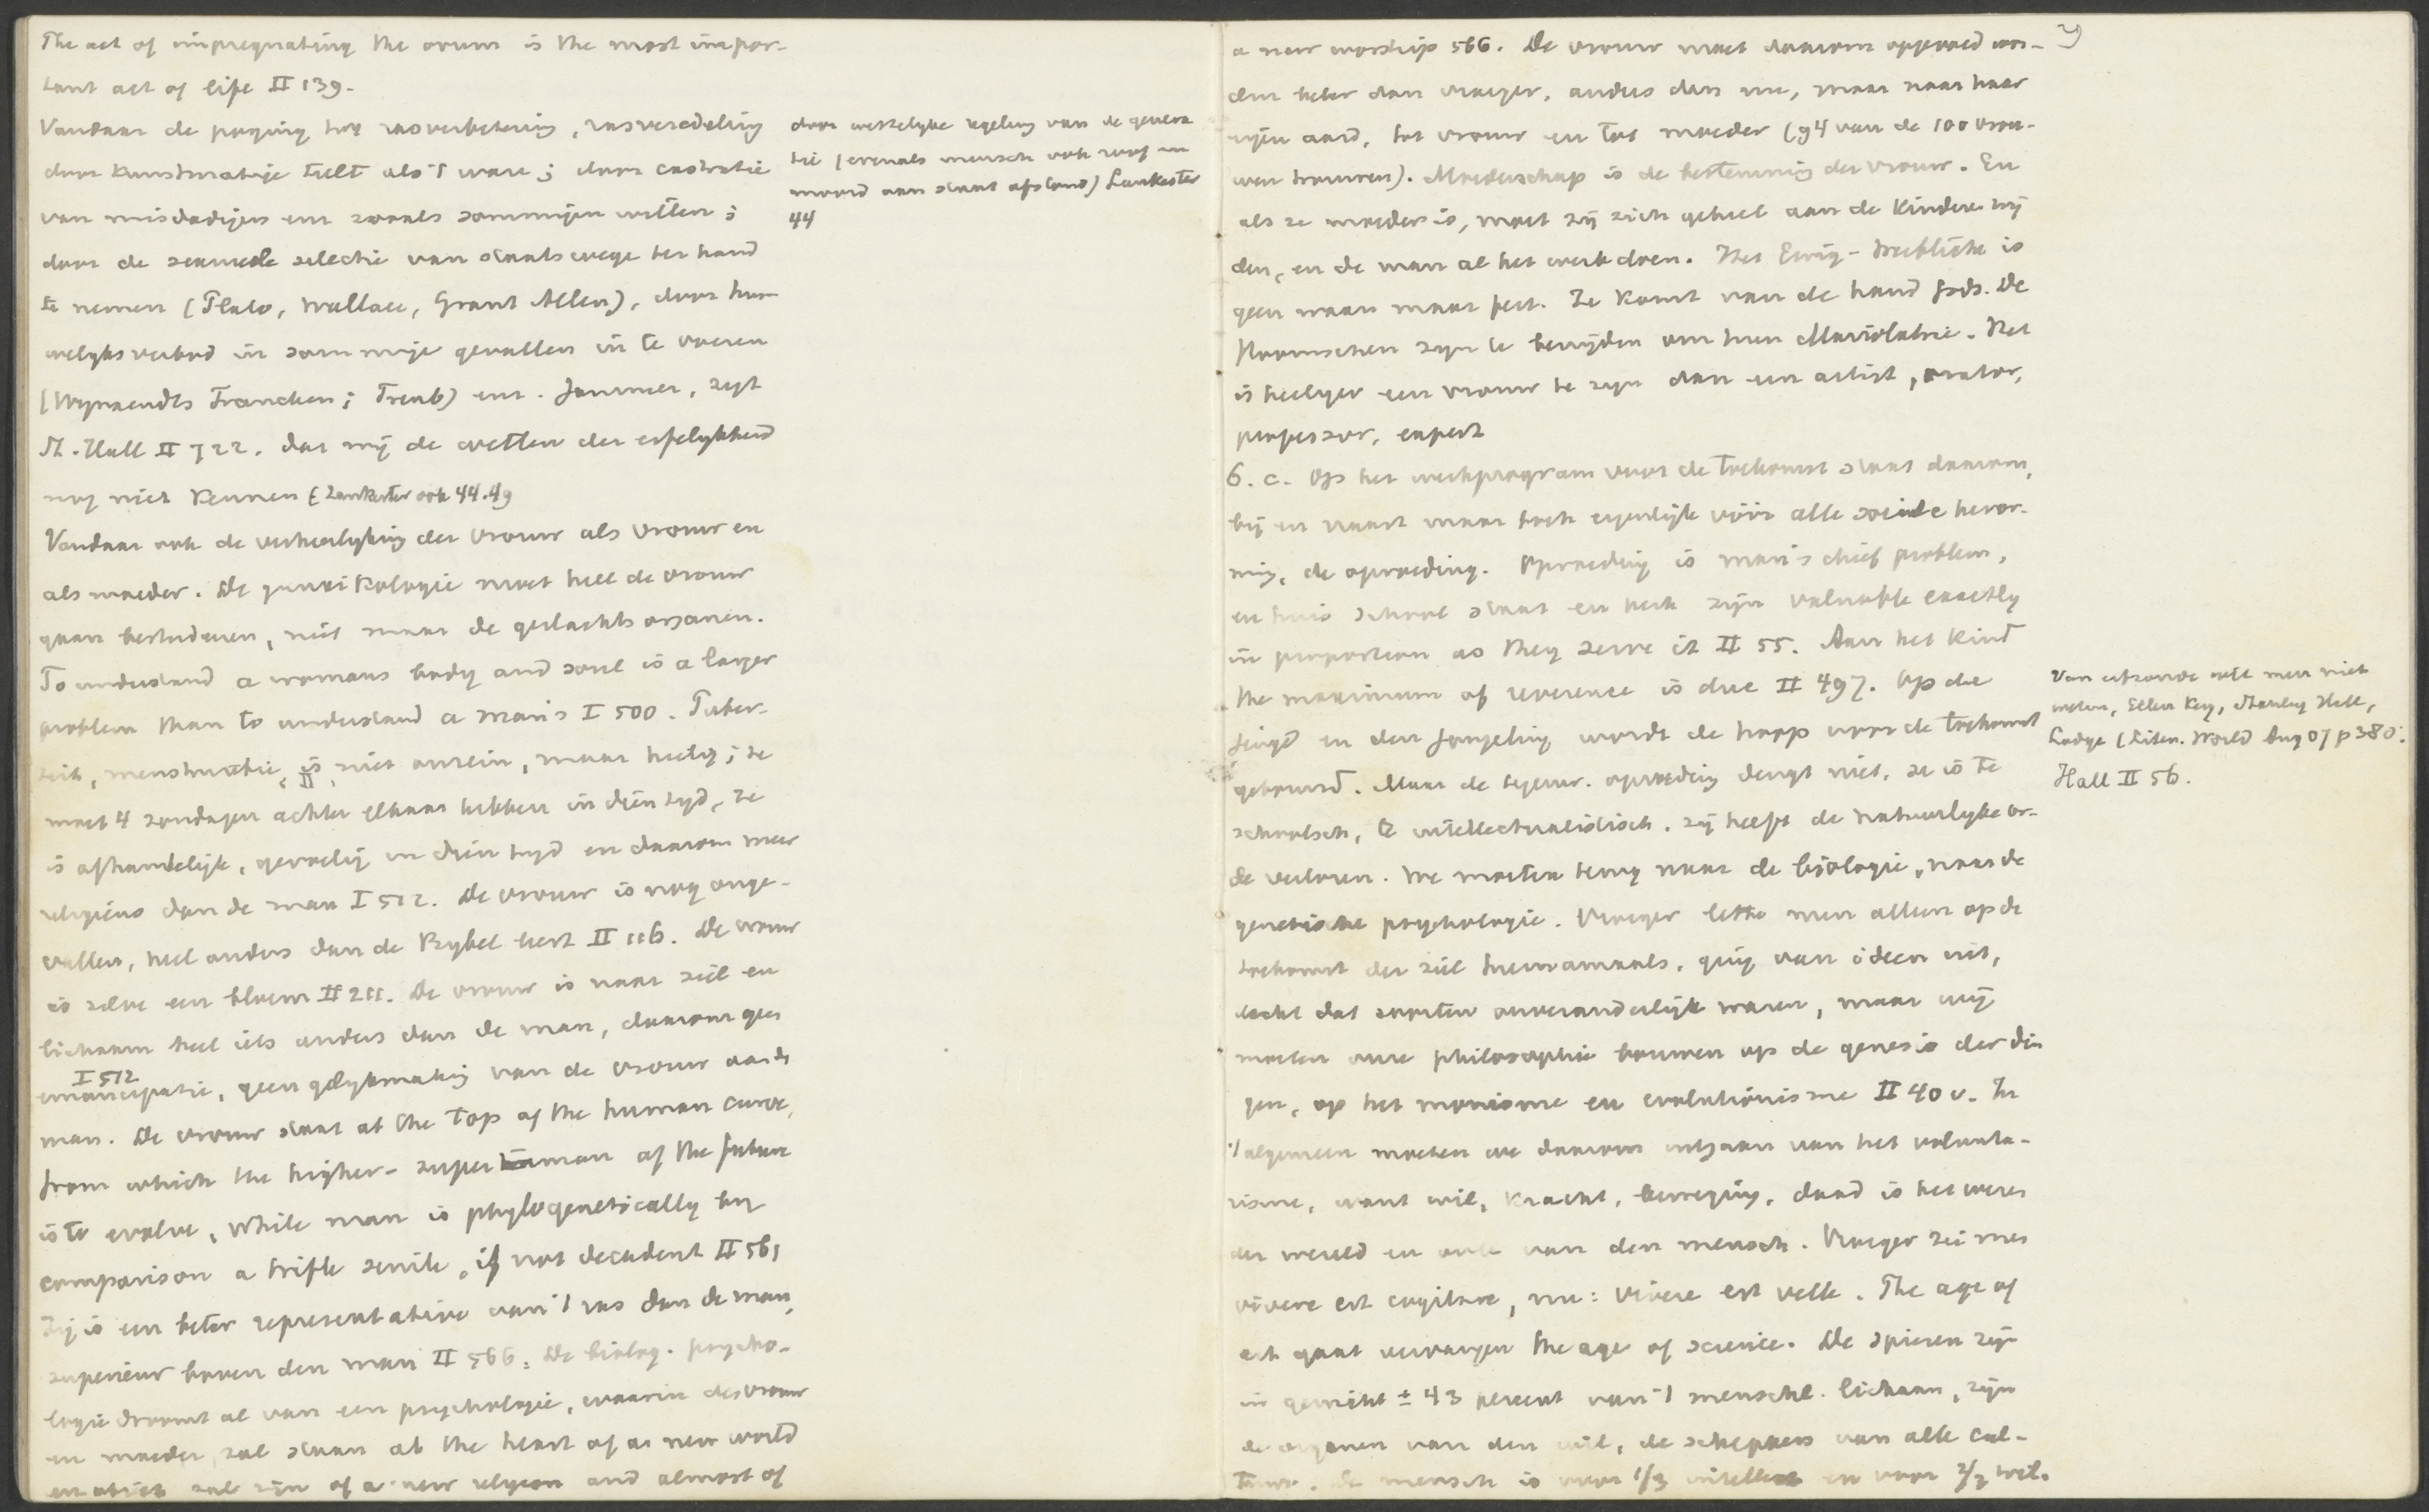 The act of impregnating the ovum is the most impor-
tant act of life II 139.
Vandaar de poging tot rasverbetering, rasveredeling
door kunstmatige teelt als 't ware; door castratie
van misdadigers enz zooals sommigen willen;
door de sexueele selectie van staatswege ter hand
te nemen (Plato, Wallace, Grant Allen), door hu-
welyksverbod in sommige gevallen in te voeren
(Wynaendts Francken; Treub) enz. Jammer, zegt
St. Hall II 722, dat wij de wetten der erfelykheid
nog niet kennen (Lankester ook 44.49
door wettelyke regeling van de genera
tie (evenals mensch ook reeds
moord aan staat afstond) Lankester
44
Vandaar ook de verheerlyking der vrouw als vrouw en
als moeder. De gynaikologie moet heel de vrouw
gaan bestudeeren, niet maar de geslachtsorganen.
To understand a womans body and soul is a larger
problem than to understand a man's I 500. Puber-
teit, menstruatie, is niet onrein, maar heilig; ze
II
moet 4 zondagen achter elkaar hebben in dien tyd, ze
is afhankelijk, gevoelig in dien tyd en daarom meer
religieus dan de man I 512. De vrouw is nog onge-
vallen, heel anders dan de Bybel leert II 116. De vrouw
is zelve een bloem II 211. De vrouw is naar ziel en
lichaam heel iets anders dan de man, daarom geen
I 512
emancipatie, geen gelykmaking van de vrouw aan de
man. De vrouw staat at the top of the human curve,
from which the higher- superman of the future
is to evolve, while man is phylogenetically by
comparison a trifle senile, if not decadent II 561
Zij is een beter representative van 't ras dan de man,
superieur boven den man II 566. De biolog. psycho-
logie droomt al van een psychologie, waarin de vrouw
en moeder, zal staan at the heart of a new world
en object zal zijn of a new religion and almost of
a new worship 566. De vrouw moet daarom opgevoed wor-
den beter dan vroeger, anders dan nu, maar naar haar
eigen aard, tot vrouw en tot moeder (94 van de 100 vrou-
wen trouwen). Moederschap is de bestemming der vrouw. En
als ze moeder is, moet zij zich geheel aan de kinderen wij
den, en de man al het werk doen. Het Ewig-Weibliche is
geen waan maar feit. Ze komt van de hand Gods. De
Roomschen zyn te benijden om hun Mariolatrie. Het
is heiliger een vrouw te zyn dan een artist, orator,
professor, expert
6. c. Op het werkprogram voor de toekomst staat daarom,
bij en naast maar toch eigenlijk vóór alle sociale hervor-
ming, de opvoeding. Opvoeding is man's chief problem,
en huis school staat en kerk zijn valuable exactly
in proportion as they serve it II 55. Aan het kind
the maximum of reverence is due II 497. Op de
jeugd en den jongeling wordt de hoop voor de toekomst
gebouwd. Maar de tegenw. opvoeding deugt niet, ze is te
schoolsch, te intellectualistisch. zij heeft de natuurlyke or-
de verloren. We moeten terug naar de biologie, naar de
genetische psychologie. Vroeger lette men alleen op de
toekomst der ziel hiernamaals, ging van ideeen uit,
dacht dat soorten onveranderlijk waren, maar wij
moeten onze philosophie bouwen op de genesis der din
gen, op het monisme en evolutionisme II 40 v. In
't algemeen moeten we daarom uitgaan van het volunta-
risme, want wil, kracht, beweging, daad is het wezen
der wereld en ook van den mensch. Vroeger zei men
vivere est cogitare, nu: vivere est velle. The age of
art gaat vervangen the age of science. De spieren zijn
in gewicht ± 43 percent van 't menschl. lichaam, zijn
de organen van den wil, de scheppers van alle cul-
tuur. De mensch is voor 1/3 intellect en voor 2/3 wil.
Van erfzonde wil men niet
weten, Ellen Key, Stanley Hall,
Lodge (Liter. World Aug 07 p 380.
Hall II 56.